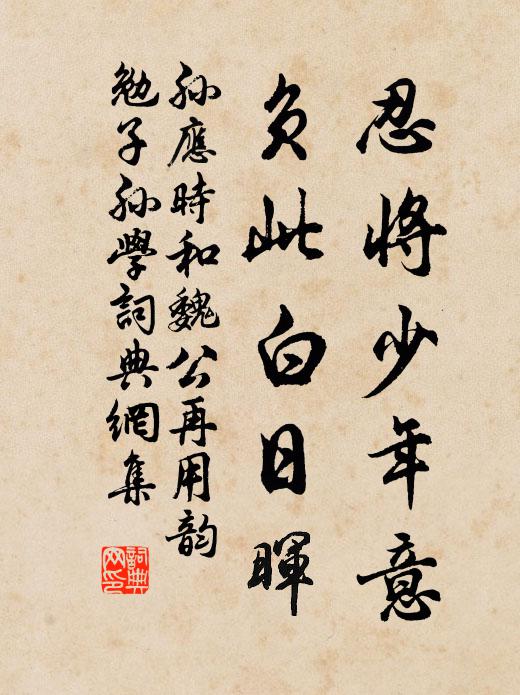 忍將少年意
負此白日暉
孙應時和魏公再用韵
勉子孙學詞典網集
詞典
网印